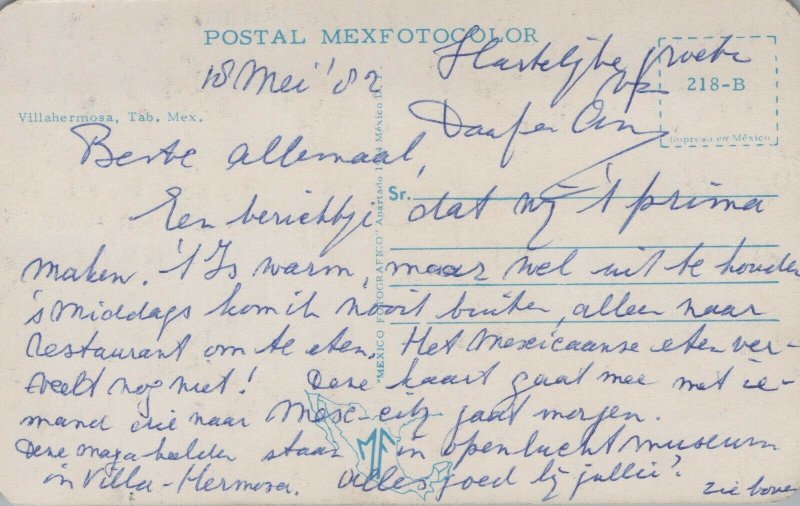 POSTAL MEXFOTOCOLOR
18 Mei '82
Hartelijke groete
218-B
Impreso en México
Villahermosa, Tab. Mex.
Beste allemaal,
Sr.
Een berichtje dat wij 't prima
maken. 't Is warm, maar wel uit te houden
's middags kom ik nooit buiten, alleen naar
restaurant om te eten. Het Mexicaanse eten ver-
veelt nog niet! Deze kaart gaat mee met ie-
mand die naar Mex-city gaat morgen.
Deze maya beelden staan in openlucht museum
in Villa-Hermosa. Alles goed bij jullie?
zie boven
"MEXICO FOTOGRAFICO" Apartado México D. F.
MF